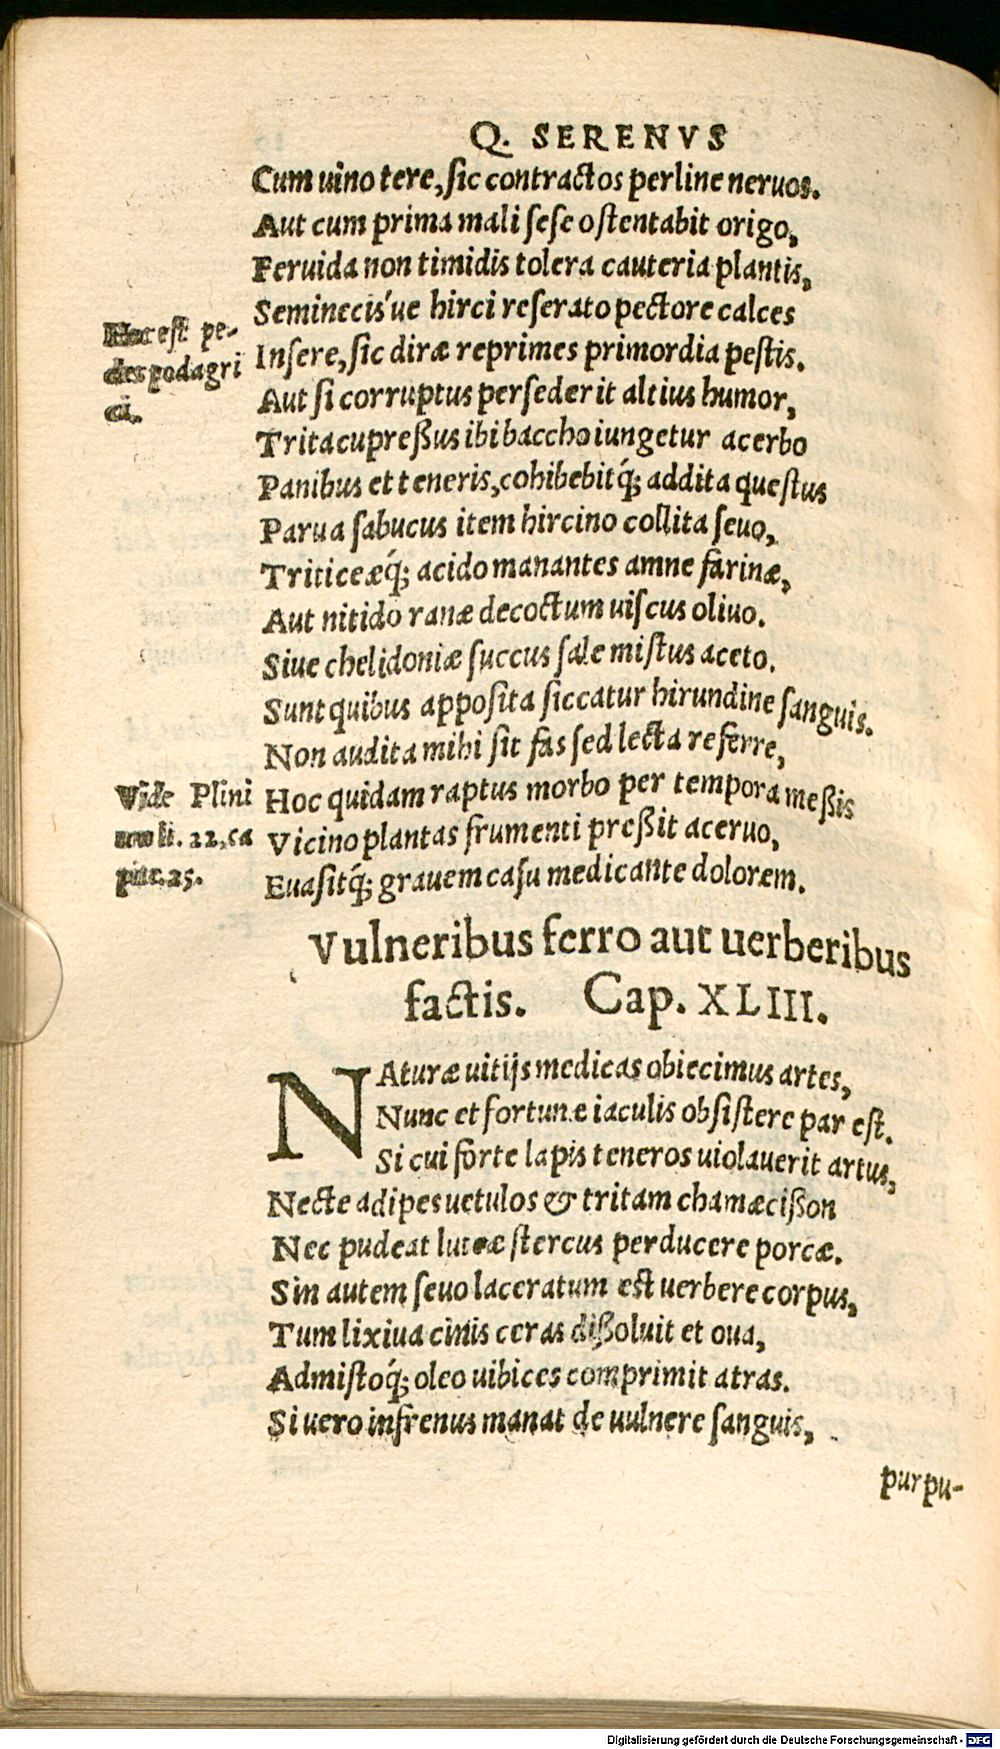 Q. SERENVS
Cum uino tere, sic contractos perline neruos.
Aut cum prima mali sese ostentabit origo,
Feruida non timidis tolera cauteria plantis,
Seminecis'ue hirci reserato pectore calces
Insere, sic diræ reprimes primordia pestis.
Aut si corruptus persederit altius humor,
Trita cupreßus ibi baccho iungetur acerbo
Panibus et teneris, cohibebitq́; addita questus
Parua sabucus item hircino collita seuo,
Triticeæq́; acido manantes amne farinæ,
Aut nitido ranæ decoctum uiscus oliuo.
Siue chelidoniæ succus sale mistus aceto.
Sunt quibus apposita siccatur hirundine sanguis.
Non audita mihi sit fas sed lecta referre,
Hoc quidam raptus morbo per tempora meßis
Vicino plantas frumenti preßit aceruo,
Euasitq́; grauem casu medicante dolorem.
Hoc est pe-
des podagri
ci.
Vide Plini
um li. 22, ca
pite. 25.
Vulneribus ferro aut uerberibus
factis. Cap. XLIII.
NAturæ uitijs medicas obiecimus artes,
Nunc et fortunæ iaculis obsistere par est.
Si cui forte lapis teneros uiolauerit artus,
Necte adipes uetulos & tritam chamæcißon
Nec pudeat luteæ stercus perducere porcæ.
Sin autem seuo laceratum est uerbere corpus,
Tum lixiua cinis ceras dißoluit et oua,
Admistoq́; oleo uibices comprimit atras.
Si uero infrenus manat de uulnere sanguis,
purpu-
Digitalisierung gefördert durch die Deutsche Forschungsgemeinschaft - DFG